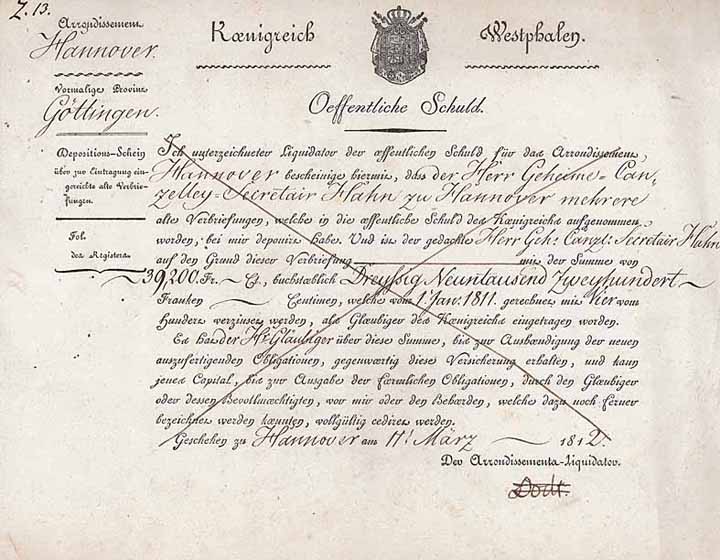 Z. 13.
Arrondissement
Hannover.
Vormalige Provinz
Göttingen.
Depositions-Schein
über zur Eintragung ein-
gereichte alte Verbrie-
fungen.
Fol.
des Registers.
Kœnigreich Westphalen.
Oeffentliche Schuld.
Ich unterzeichneter Liquidator der œffentlichen Schuld für das Arrondissement
Hannover bescheinige hiermit, dass der Herr Geheime-Can-
zelley-Secretair Hahn zu Hannover mehrere
alte Verbriefungen, welche in die œffentliche Schuld des Kœnigreichs aufgenommen
worden, bei mir deponirt habe. Und ist der gedachte Herr Geh: Canzl: Secretair Hahn
auf den Grund dieser Verbriefung mit der Summe von
39,200 Fr. Ct., buchstæblich Dreyssig Neuntausend Zweyhundert
Franken Centimen, welche vom 1. Jan. 1811. gerechnet mit Vier vom
Hundert verzinset werden, als Glæubiger des Kœnigreichs eingetragen worden.
Es hat der Hr. Gläubiger über diese Summe, bis zur Aushændigung der neuen
auszufertigenden Obligationen, gegenwærtig diese Versicherung erhalten, und kann
jenes Capital, bis zur Ausgabe der fœrmlichen Obligationen, durch den Glæubiger
oder dessen Bevollmæchtigten, vor mir oder den Behœrden, welche dazu noch ferner
bezeichnet werden kœnnten, vollgültig cedirt werden.
Geschehen zu Hannover am 11t März 1812.
Der Arrondissements-Liquidator.